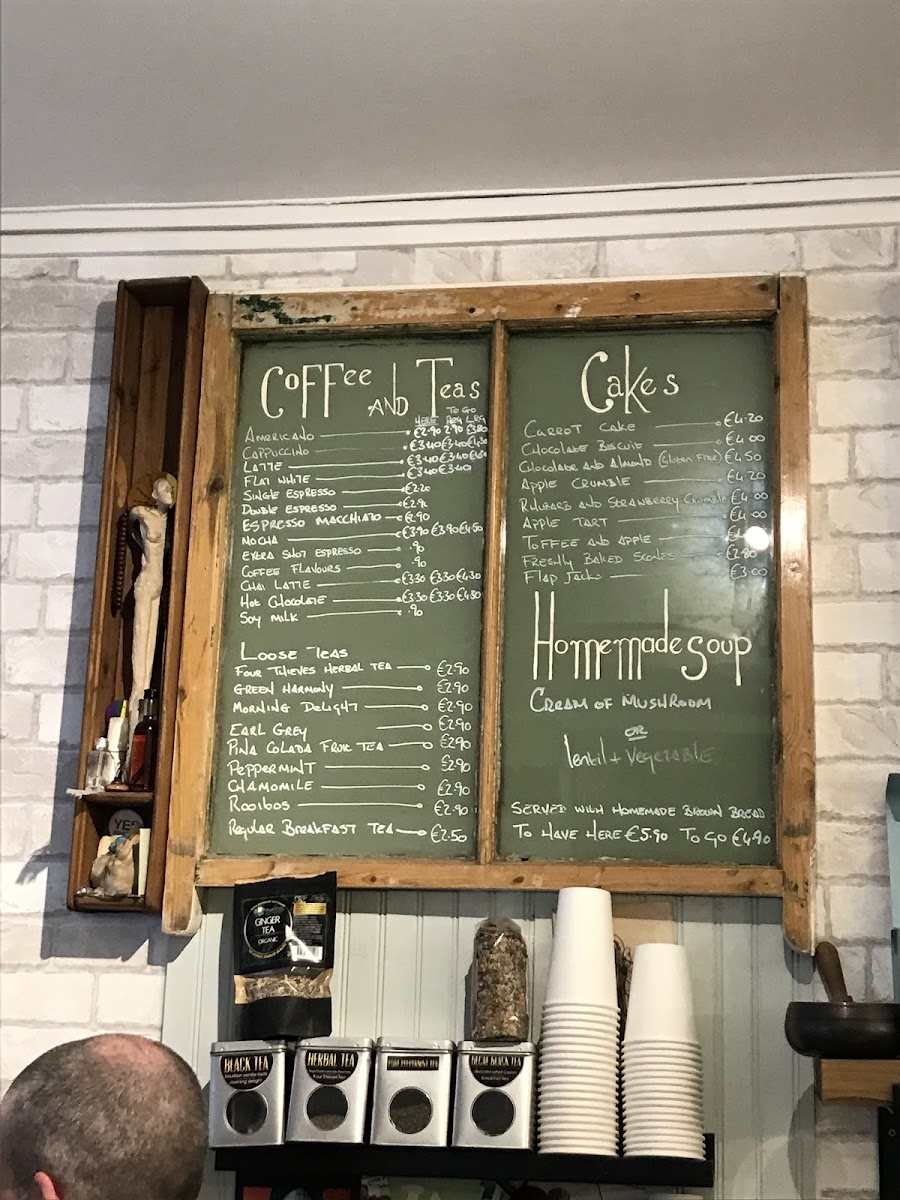 Coffee AND Teas
TO GO
HERE REG LRG
AMERICANO €2.90 2.90 €3.80
CAPPUCCINO €3.40 €3.40 €4.30
LATTE €3.40 €3.40
FLAT WHITE €3.40 €3.40
SINGLE ESPRESSO €2.20
DOUBLE ESPRESSO €2.90
ESPRESSO MACCHIATO €2.90
MOCHA €3.90 €3.90 €4.50
EXTRA SHOT ESPRESSO .90
COFFEE FLAVOURS .90
CHAI LATTE €3.30 €3.30 €4.30
Hot CHOCOLATE €3.30 €3.30 €4.30
Soy MILK .90
LOOSE TEAS
FOUR THIEVES HERBAL TEA €2.90
GREEN HARMONY €2.90
MORNING DELIGHT €2.90
EARL GREY €2.90
PINA COLADA FRUIT TEA €2.90
PEPPERMINT €2.90
CHAMOMILE €2.90
ROOIBOS €2.90
REGULAR BREAKFAST TEA €2.50
Cakes
CARROT CAKE €4.20
CHOCOLATE BISCUIT €4.00
CHOCOLATE AND ALMOND (Gluten Free) €4.50
APPLE CRUMBLE €4.20
RHUBARB AND STRAWBERRY CRUMBLE €4.00
APPLE TART €4.00
TOFFEE AND APPLE
FRESHLY BAKED SCONES €2.80
FLAP Jacks €3.00
Homemade Soup
CREAM OF MUSHROOM
OR
lentil + VEGETABLE
SERVED WITH HOMEMADE BROWN BREAD
TO HAVE HERE €5.90 TO GO €4.90
GINGER
TEA
ORGANIC
YES
BLACK TEA
morning delight
HERBAL TEA
Four Thieves Tea
PEPPERMINT TEA
DECAF BLACK TEA
Breakfast Tea